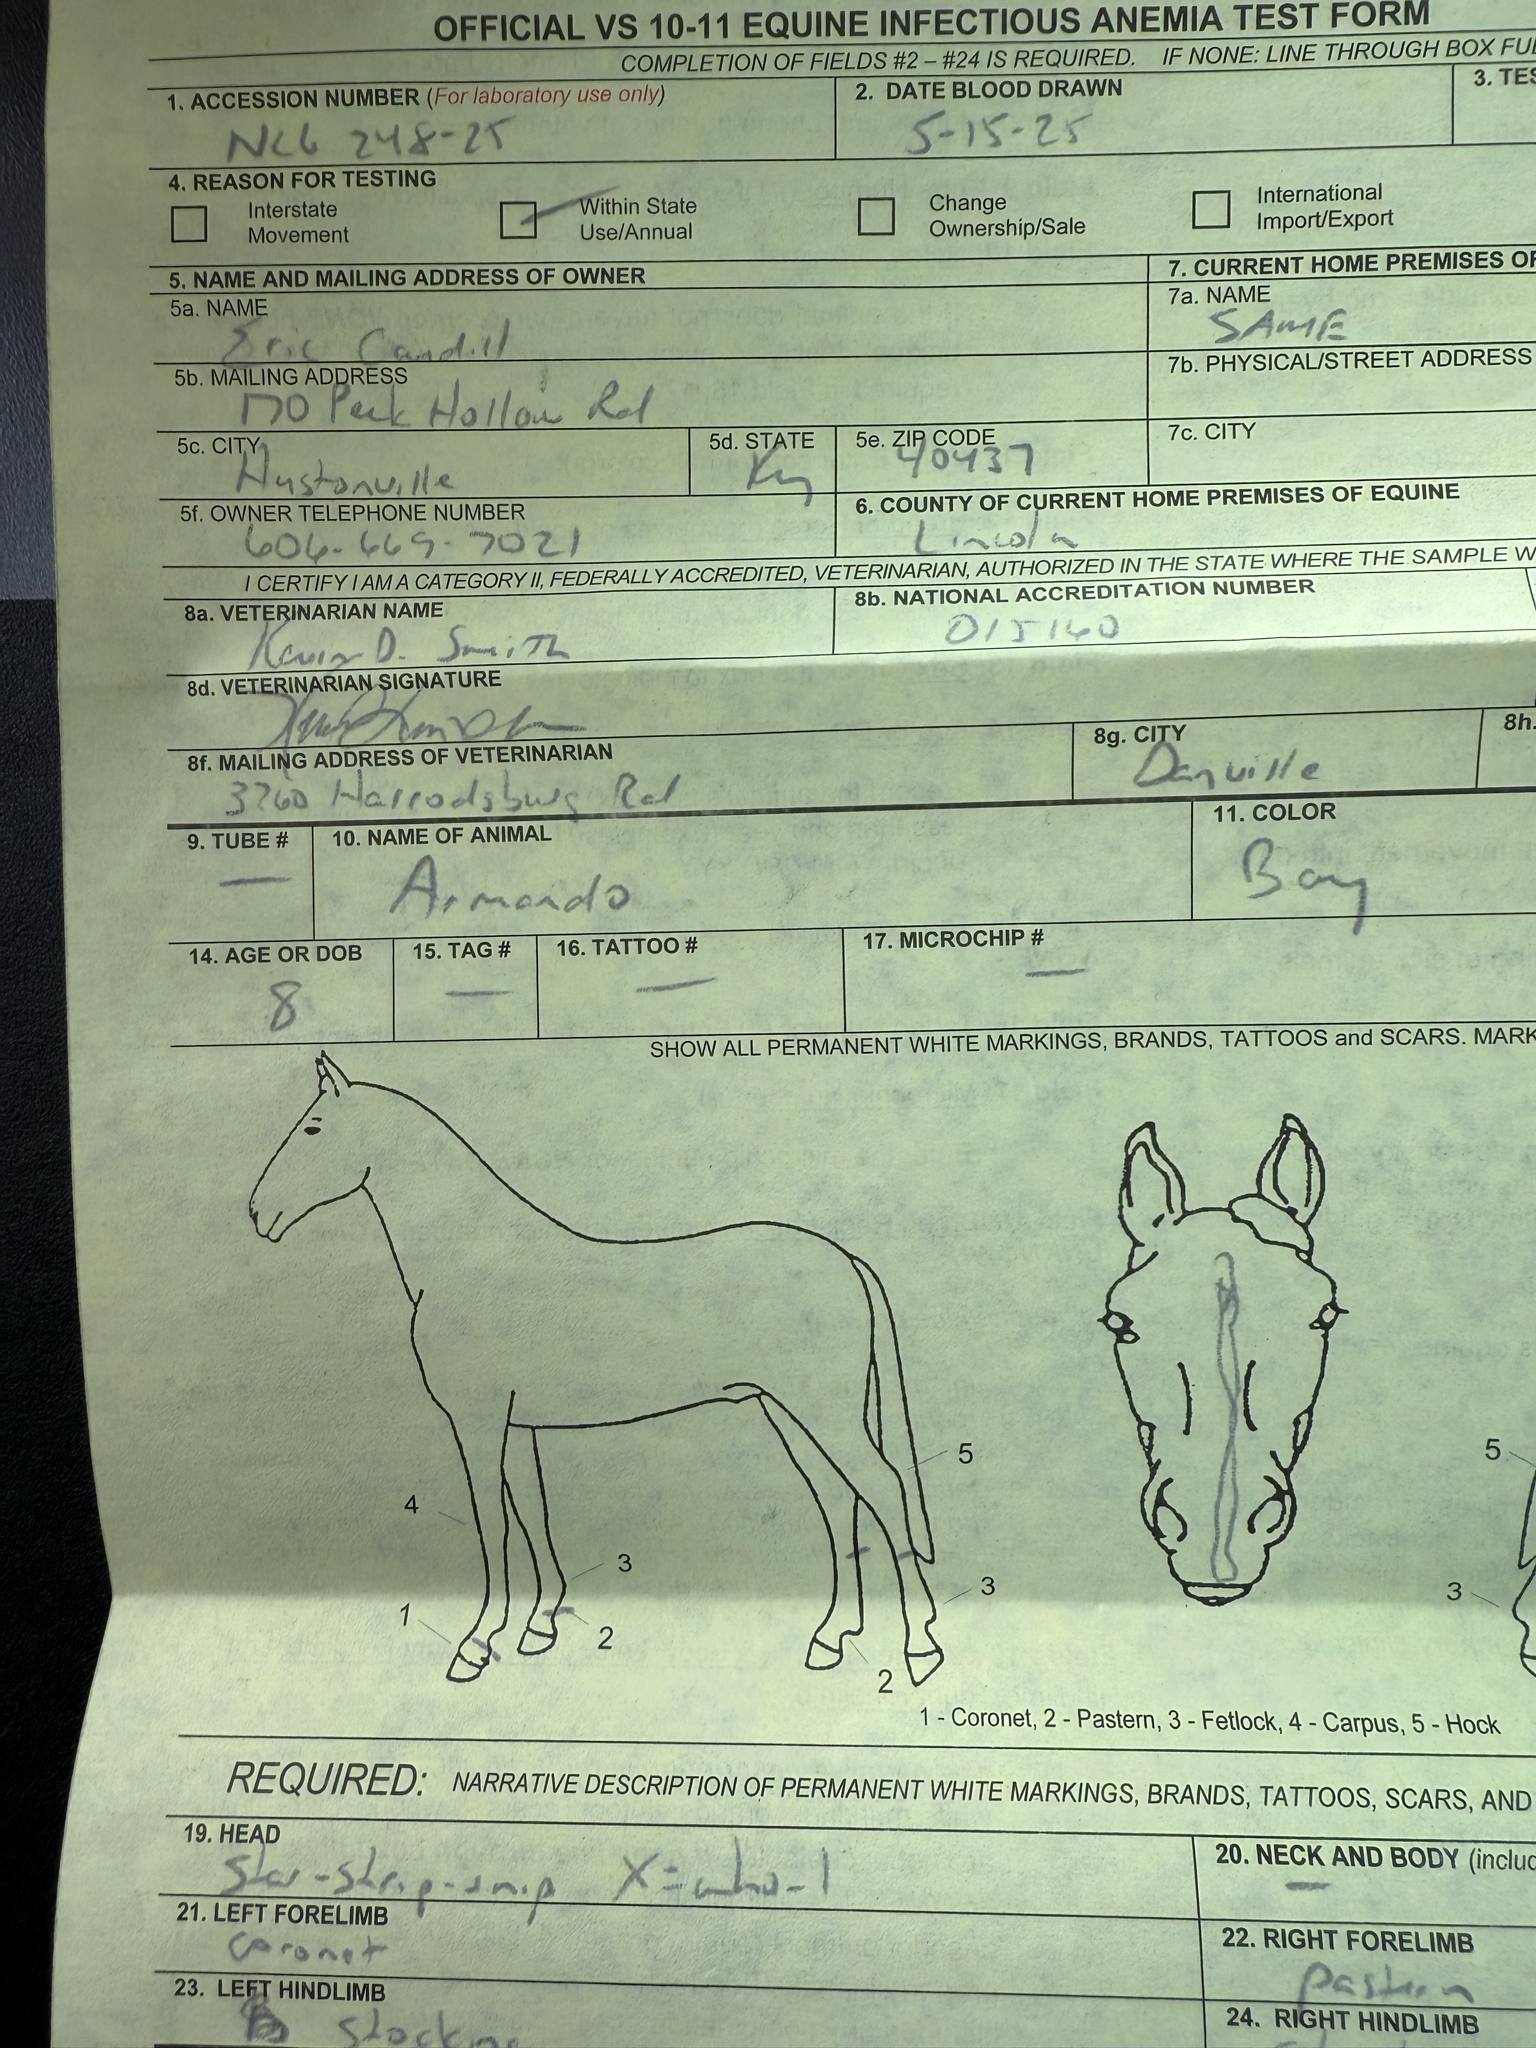 OFFICIAL VS 10-11 EQUINE INFECTIOUS ANEMIA TEST FORM
COMPLETION OF FIELDS #2 – #24 IS REQUIRED. IF NONE: LINE THROUGH BOX FUL
1. ACCESSION NUMBER (For laboratory use only)
248-25
2. DATE BLOOD DRAWN
5-15-25
3. TES
4. REASON FOR TESTING
Interstate Movement
Within State Use/Annual
Change Ownership/Sale
International Import/Export
5. NAME AND MAILING ADDRESS OF OWNER
5a. NAME
Eric
5b. MAILING ADDRESS
170 Hollow Rd
5c. CITY
Hustonville
5d. STATE
Ky
5e. ZIP CODE
40437
5f. OWNER TELEPHONE NUMBER
606-669-7021
6. COUNTY OF CURRENT HOME PREMISES OF EQUINE
Lincoln
7. CURRENT HOME PREMISES OF
7a. NAME
SAME
7b. PHYSICAL/STREET ADDRESS
7c. CITY
I CERTIFY I AM A CATEGORY II, FEDERALLY ACCREDITED, VETERINARIAN, AUTHORIZED IN THE STATE WHERE THE SAMPLE W
8a. VETERINARIAN NAME
D. Smith
8b. NATIONAL ACCREDITATION NUMBER
015160
8d. VETERINARIAN SIGNATURE
8f. MAILING ADDRESS OF VETERINARIAN
3760 Harrodsburg Rd
8g. CITY
Danville
8h.
9. TUBE #
—
10. NAME OF ANIMAL
Armando
11. COLOR
Bay
14. AGE OR DOB
8
15. TAG #
—
16. TATTOO #
—
17. MICROCHIP #
—
SHOW ALL PERMANENT WHITE MARKINGS, BRANDS, TATTOOS and SCARS. MARK
4
1
3
2
5
3
2
5
3
1 - Coronet, 2 - Pastern, 3 - Fetlock, 4 - Carpus, 5 - Hock
REQUIRED: NARRATIVE DESCRIPTION OF PERMANENT WHITE MARKINGS, BRANDS, TATTOOS, SCARS, AND
19. HEAD
Star-strip-snip X=whorl
20. NECK AND BODY (includ
—
21. LEFT FORELIMB
coronet
22. RIGHT FORELIMB
pastern
23. LEFT HINDLIMB
stocking
24. RIGHT HINDLIMB